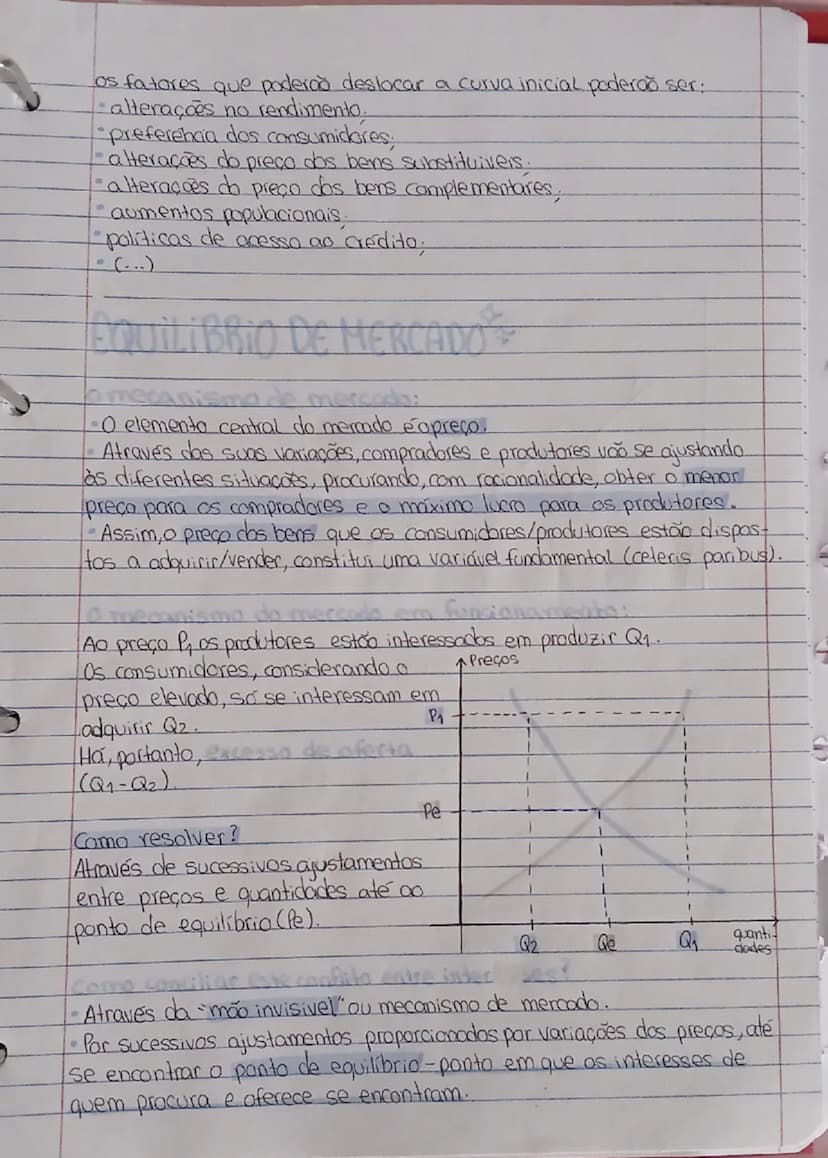 os fatores que poderão deslocar a curva inicial poderão ser:
• alterações no rendimento;
• preferência dos consumidores;
• alterações do preço dos bens substituíveis;
• alterações do preço dos bens complementares;
• aumentos populacionais;
• políticas de acesso ao crédito;
• (...)
EQUILÍBRIO DE MERCADO
o mecanismo de mercado:
• O elemento central do mercado é o preço.
• Através das suas variações, compradores e produtores vão se ajustando
às diferentes situações, procurando, com racionalidade, obter o menor
preço para os compradores e o máximo lucro para os produtores.
• Assim, o preço dos bens que os consumidores/produtores estão dispos-
tos a adquirir/vender, constitui uma variável fundamental (celeris paribus).
o mecanismo do mercado em funcionamento:
Ao preço P1 os produtores estão interessados em produzir Q1.
Os consumidores, considerando o
preço elevado, só se interessam em
adquirir Q2.
Há, portanto, excesso de oferta
(Q1-Q2).
Como resolver?
Através de sucessivos ajustamentos
entre preços e quantidades até ao
ponto de equilíbrio (Pe).
Preços
P1
Pe
Q2 Qe Q1
quanti-
dades
como conciliar este conflito entre
• Através da "mão invisível" ou mecanismo de mercado.
• Por sucessivos ajustamentos proporcionados por variações dos preços, até
se encontrar o ponto de equilíbrio - ponto em que os interesses de
quem procura e oferece se encontram.